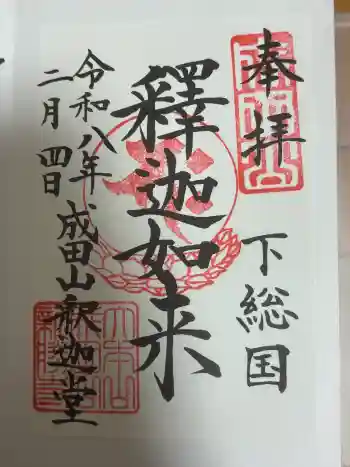 奉拝
下総国
釋迦如来
成田山釈迦堂
令和八年
二月四日